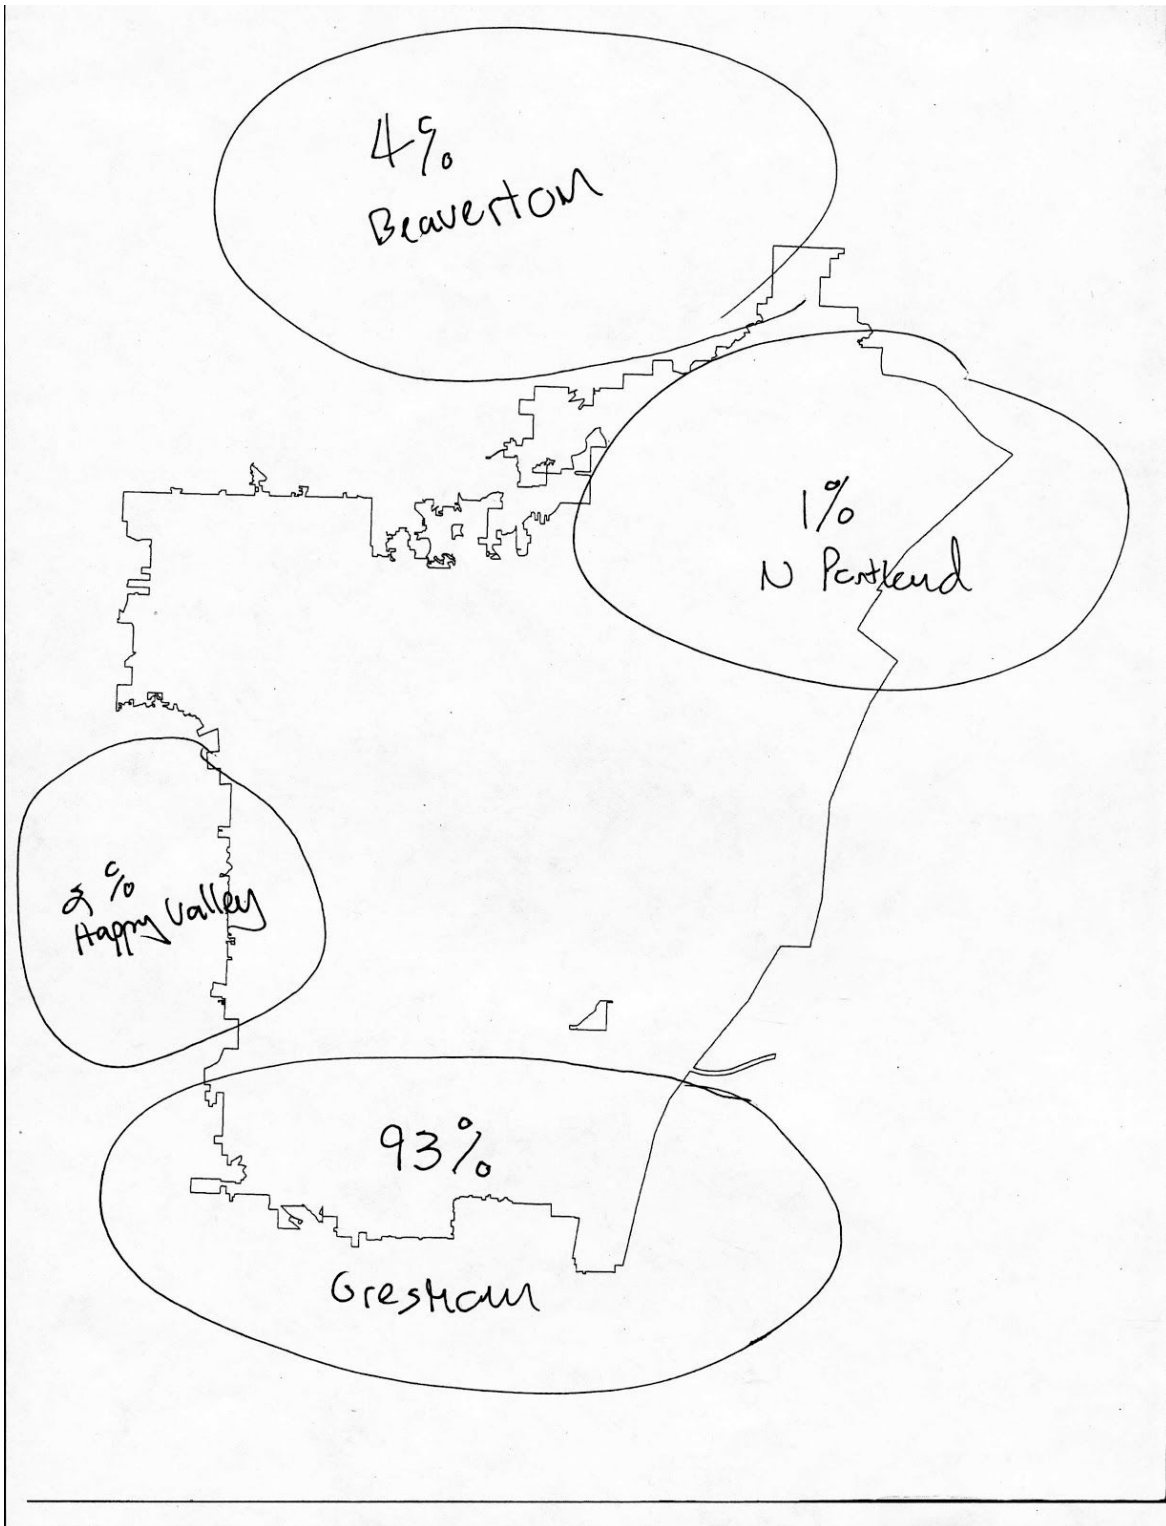 4%
Beaverton
1%
N Portland
2%
Happy Valley
93%
Gresham